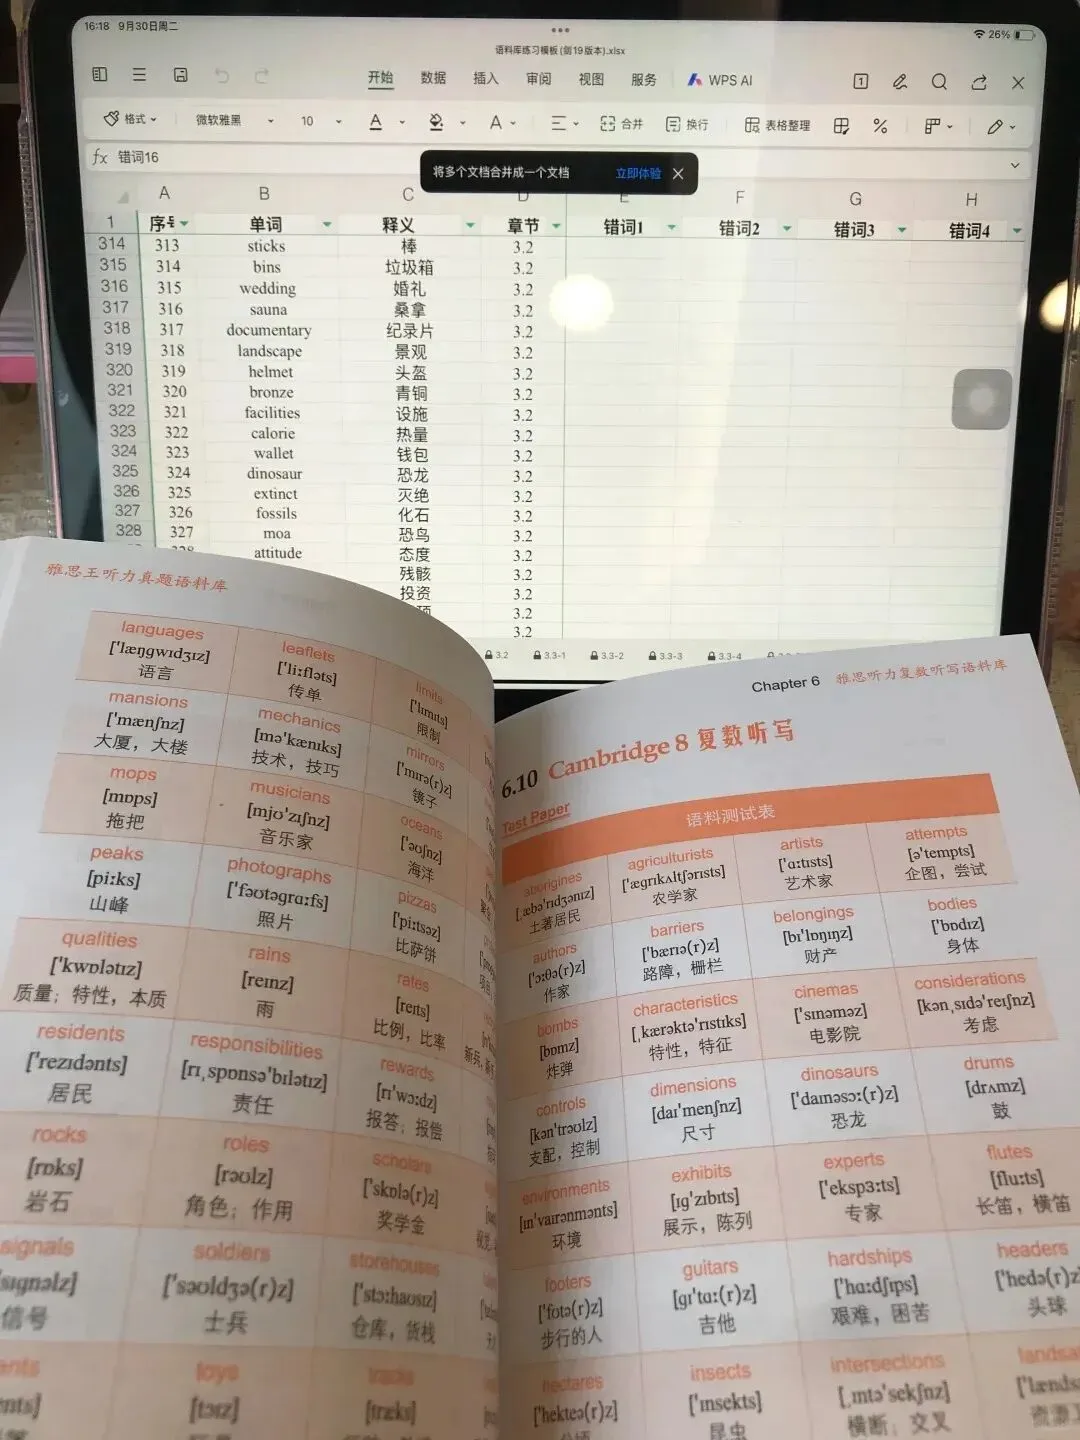 16:18 9月30日周二
26%
语料库练习模板(剑19版本).xlsx
开始 数据 插入 审阅 视图 服务 WPS AI
1
格式 微软雅黑 10 A A 合并 换行 表格整理 %
fx 错词16
将多个文档合并成一个文档 立即体验
A B C D E F G H
1 序号 单词 释义 章节 错词1 错词2 错词3 错词4
314 313 sticks 棒 3.2
315 314 bins 垃圾箱 3.2
316 315 wedding 婚礼 3.2
317 316 sauna 桑拿 3.2
318 317 documentary 纪录片 3.2
319 318 landscape 景观 3.2
320 319 helmet 头盔 3.2
321 320 bronze 青铜 3.2
322 321 facilities 设施 3.2
323 322 calorie 热量 3.2
324 323 wallet 钱包 3.2
325 324 dinosaur 恐龙 3.2
326 325 extinct 灭绝 3.2
327 326 fossils 化石 3.2
328 327 moa 恐鸟 3.2
328 attitude 态度 3.2
残骸 3.2
投资 3.2
3.2
3.2
3.2 3.3-1 3.3-2 3.3-3 3.3-4
雅思王听力真题语料库
languages leaflets limits
['læŋgwɪdʒɪz] ['liːfləts] ['lɪmɪts]
语言 传单 限制
mansions mechanics mirrors
['mænʃnz] [mə'kænɪks] ['mɪrə(r)z]
大厦，大楼 技术，技巧 镜子
mops musicians oceans
[mɒps] [mjʊ'zɪʃnz] ['əʊʃnz]
拖把 音乐家 海洋
peaks photographs pizzas
[piːks] ['fəʊtəgrɑːfs] ['piːtsəz]
山峰 照片 比萨饼
qualities rains rates
['kwɒlətɪz] [reɪnz] [reɪts]
质量；特性，本质 雨 比例，比率
residents responsibilities rewards
['rezɪdənts] [rɪˌspɒnsə'bɪlətɪz] [rɪ'wɔːdz]
居民 责任 报答；报偿
rocks roles scholars
[rɒks] [rəʊlz] ['skɒlə(r)z]
岩石 角色；作用 奖学金
signals soldiers storehouses
['səʊldʒə(r)z] ['stɔːhaʊsɪz]
信号 士兵 仓库，货栈
toys
[tɔɪz] [træks]
Chapter 6 雅思听力复数听写语料库
6.10 Cambridge 8 复数听写
Test Paper
语料测试表
aborigines agriculturists artists attempts
[ˌæbə'rɪdʒənɪz] ['ægrɪkʌltʃərɪsts] ['ɑːtɪsts] [ə'tempts]
土著居民 农学家 艺术家 企图，尝试
authors barriers belongings bodies
['ɔːθə(r)z] ['bærɪə(r)z] [bɪ'lɒŋɪŋz] ['bɒdɪz]
作家 路障，栅栏 财产 身体
bombs characteristics cinemas considerations
[bɒmz] [ˌkærəktə'rɪstɪks] ['sɪnəməz] [kənˌsɪdə'reɪʃnz]
炸弹 特性，特征 电影院 考虑
controls dimensions dinosaurs drums
[kən'trəʊlz] [daɪ'menʃnz] ['daɪnəsɔː(r)z] [drʌmz]
支配，控制 尺寸 恐龙 鼓
environments exhibits experts flutes
[ɪn'vaɪrənmənts] [ɪg'zɪbɪts] ['ekspɜːts] [fluːts]
环境 展示，陈列 专家 长笛，横笛
footers guitars hardships headers
['fʊtə(r)z] [gɪ'tɑː(r)z] ['hɑːdʃɪps] ['hedə(r)z]
步行的人 吉他 艰难，困苦 头球
hectares insects intersections
['hektеə(r)z] ['ɪnsekts] [ˌɪntə'sekʃnz]
公顷 昆虫 横断；交叉